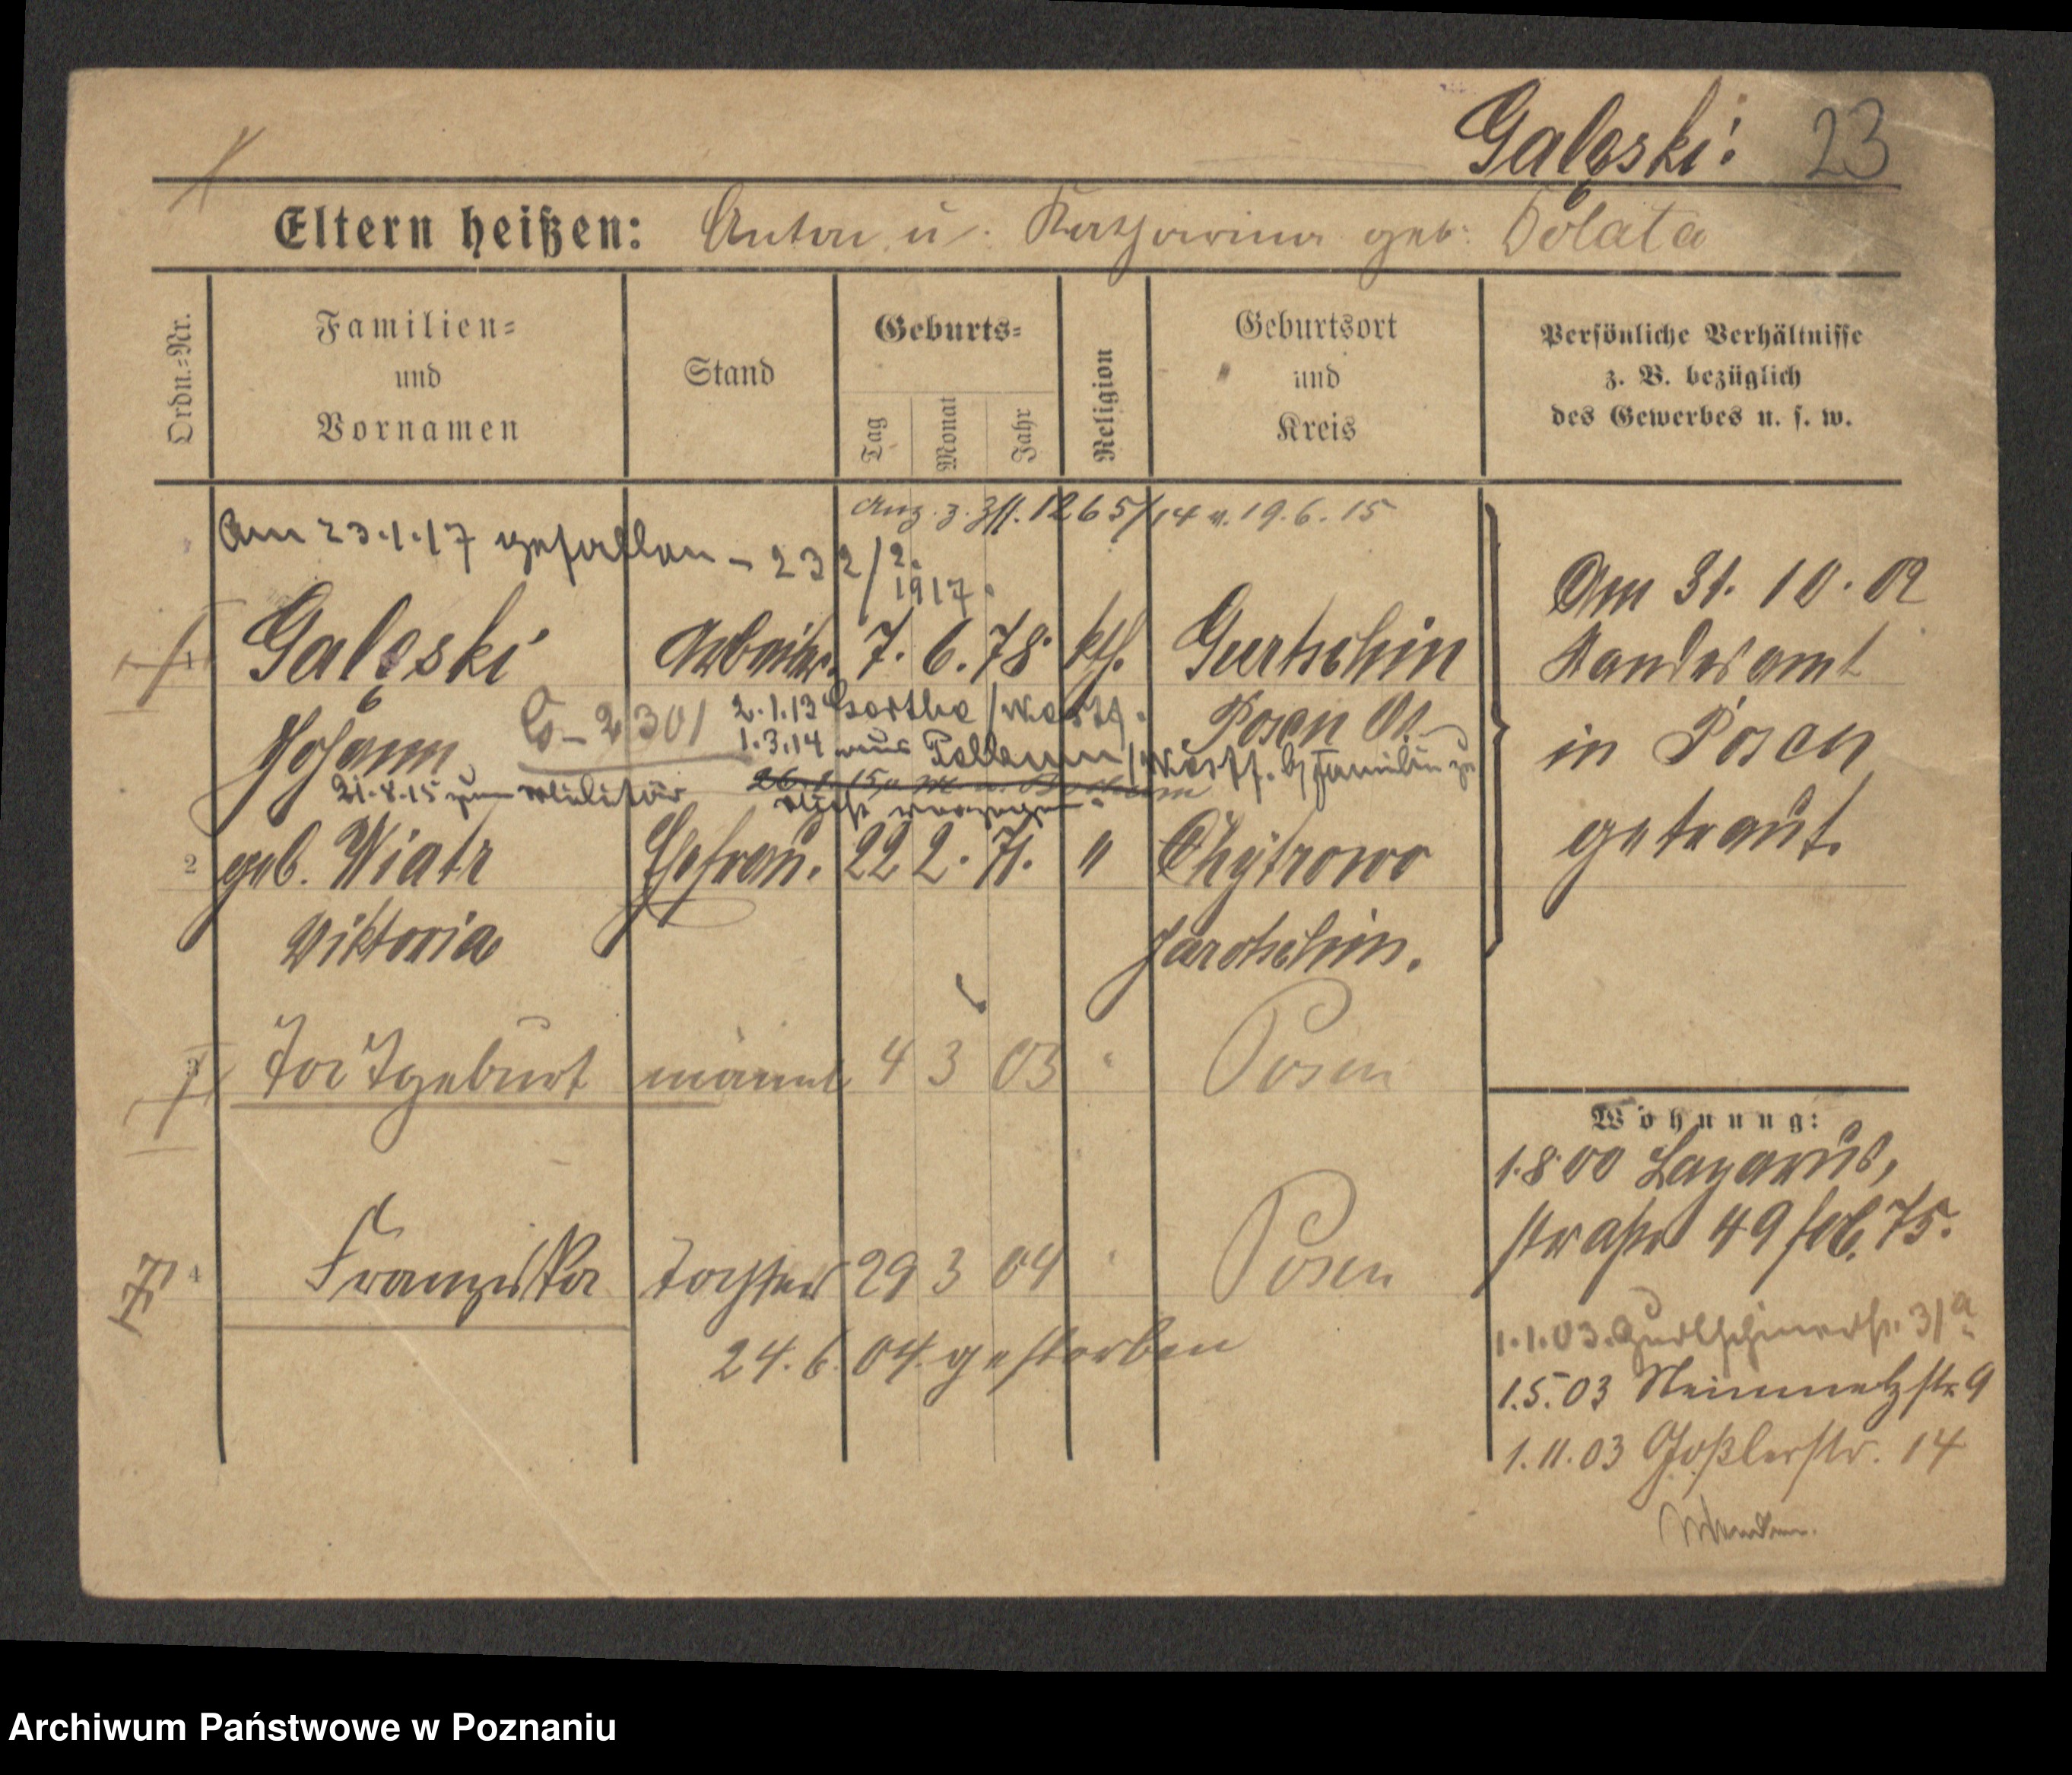 Galęski: 23
Eltern heißen: Anton u. Katharina geb. Dolata
Ordn.=Nr.
Familien=
und
Vornamen
Stand
Geburts=
Tag
Monat
Jahr
Religion
Geburtsort
und
Kreis
Persönliche Verhältnisse
z. B. bezüglich
des Gewerbes u. s. w.
1265/14 v. 19.6.15
Am 23.1.17 gefallen - 232/2.
1917.
1 Galęski Arbeiter. 7. 6. 78. kth. Gurtschin
Johann G-2301 2.1.13 /Westf. Posen W.
1.3.14 aus /Westf. Familie
21.8.15 zum Militär
2 geb. Wiatr Ehefrau. 22 2. 71. " Chÿtrowo
Viktoria Jarotschin.
Am 31. 10. 02
Standesamt
in Posen
getraut.
3 Todtgeburt männl 4 3 03 " Posen
4 Franziska Tochter 29 3 04 " Posen
24. 6. 04 gestorben
Wohnung:
1.8.00 Lazarus,
straße 49 75.
1.1.03. Gurtschinerstr. 31a
1.5.03 Steinmetzstr. 9
1.11.03 Goßlerstr. 14
Archiwum Państwowe w Poznaniu